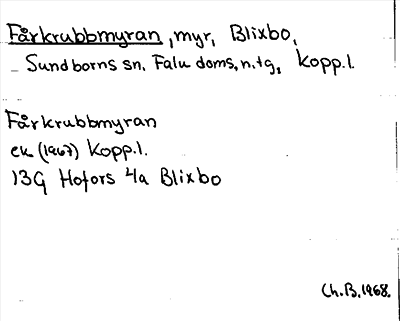 Fårkrubbmyran, myr, Blixbo,
Sundborns sn, Falu doms, n.tg, Kopp.l.
Fårkrubbmyran
ek (1967) Kopp.l.
13G Hofors 4a Blixbo
Ch.B.1968.